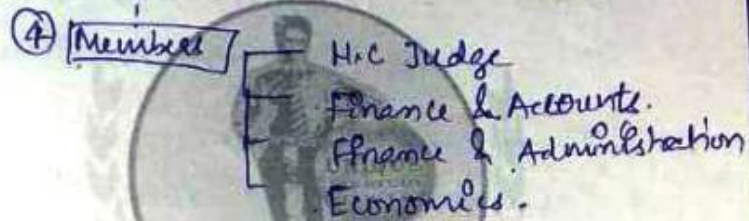 ④ Members
H.C Judge
Finance & Accounts.
Finance & Administration
Economics.